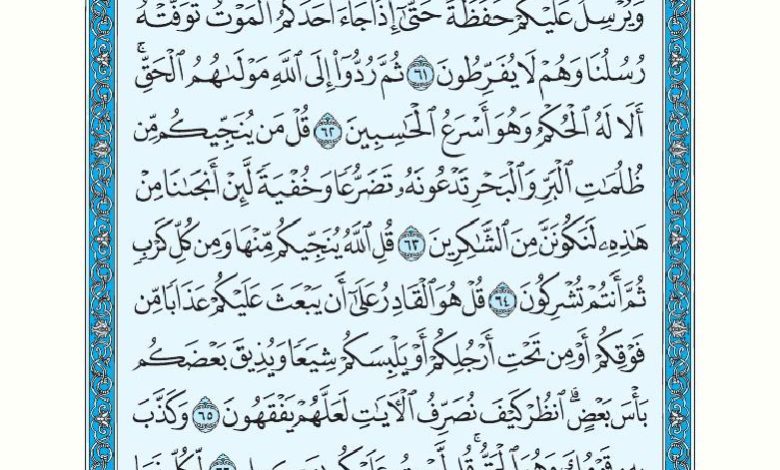 وَيُرْسِلُ عَلَيْكُمْ حَفَظَةً حَتَّىٰٓ إِذَا جَآءَ أَحَدَكُمُ ٱلْمَوْتُ تَوَفَّتْهُ
رُسُلُنَا وَهُمْ لَا يُفَرِّطُونَ ٦١ ثُمَّ رُدُّوٓا۟ إِلَى ٱللَّهِ مَوْلَىٰهُمُ ٱلْحَقِّ ۚ
أَلَا لَهُ ٱلْحُكْمُ وَهُوَ أَسْرَعُ ٱلْحَـٰسِبِينَ ٦٢ قُلْ مَن يُنَجِّيكُم مِّن
ظُلُمَـٰتِ ٱلْبَرِّ وَٱلْبَحْرِ تَدْعُونَهُۥ تَضَرُّعًا وَخُفْيَةً لَّئِنْ أَنجَىٰنَا مِنْ
هَـٰذِهِۦ لَنَكُونَنَّ مِنَ ٱلشَّـٰكِرِينَ ٦٣ قُلِ ٱللَّهُ يُنَجِّيكُم مِّنْهَا وَمِن كُلِّ كَرْبٍ
ثُمَّ أَنتُمْ تُشْرِكُونَ ٦٤ قُلْ هُوَ ٱلْقَادِرُ عَلَىٰٓ أَن يَبْعَثَ عَلَيْكُمْ عَذَابًا مِّن
فَوْقِكُمْ أَوْ مِن تَحْتِ أَرْجُلِكُمْ أَوْ يَلْبِسَكُمْ شِيَعًا وَيُذِيقَ بَعْضَكُم
بَأْسَ بَعْضٍ ۗ ٱنظُرْ كَيْفَ نُصَرِّفُ ٱلْـَٔايَـٰتِ لَعَلَّهُمْ يَفْقَهُونَ ٦٥ وَكَذَّبَ
بِهِۦ قَوْمُكَ وَهُوَ ٱلْحَقُّ ۚ قُل لَّسْتُ عَلَيْكُم بِوَكِيلٍ ٦٦ لِّكُلِّ نَبَإٍ